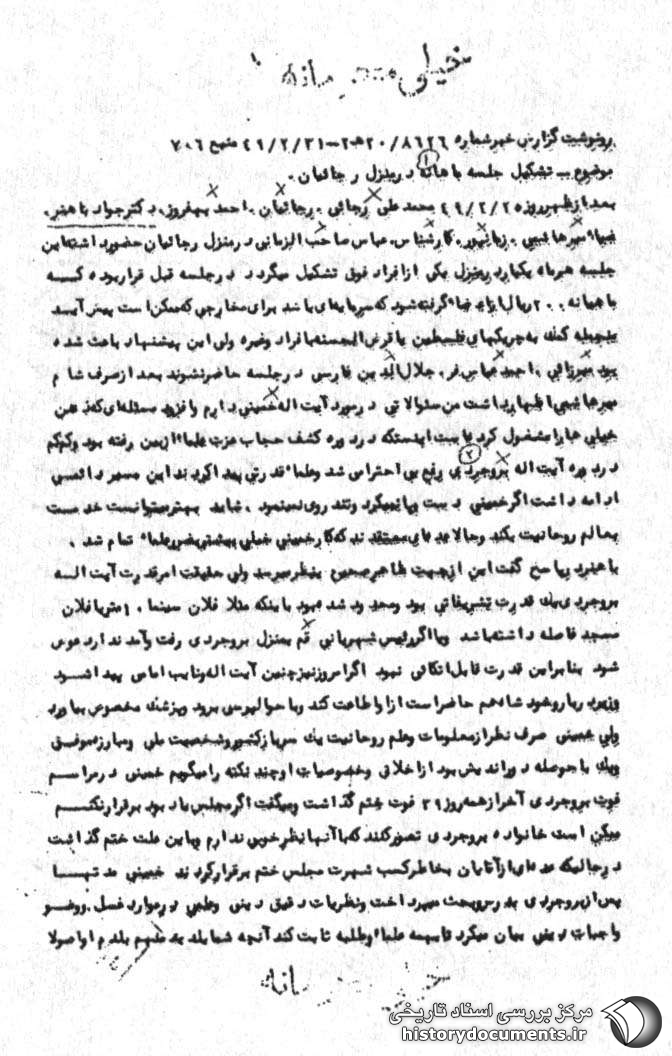 خیلی محرمانه
رونوشت گزارش خبر شماره ۸۶۲۶/ ۲۰ﻫ۲ــ ۴۹/۲/۳۱ منبع ۷۰۶
موضوع ــ تشکیل جلسه ماهانه در منزل رجائیان .
۱
بعد از ظهر روز ۴۹/۲/۲۵ محمد علی رجائی . رجائیان . احمد بهفروز . دکتر جواد باهنر .
ضیاء میرهاشمی . زیانپور . کارشناس . عباس صاحب الزمانی در منزل رجائیان حضور داشتند این
جلسه هر ماه یکبار در منزل یکی از افراد فوق تشکیل میگردد در جلسه قبل قرار بوده کــه
ماهیانه ۲۰۰ ریال از اعضاء گرفته شود که سرمایه‌ای باشد برای مخارجی که ممکن است پیش آیــد
منجمله کمک به چریکهای فلسطین یا قرض الحسنه بافراد وغیره ولی این پیشنهاد باعث شده
بود میرزائی . احمد عباس فر . جلال الدین فارسی در جلسه حاضر نشوند بعد از صرف شام
میرهاشمی اظهار داشت من سئوالاتی در مورد آیت اله خمینی دارم و افزود مسئله‌ای که ذهن
خیلی ها را مشغول کرده بابت اینستکه در دوره کشف حجاب عزت علماء از بین رفته بود و کم‌کم
در دوره آیت اله بروجردی رفع بی احترامی شد و علماء قدرتی پیدا کردند این مسیر دائمــی
۲
ادامه داشت اگر خمینی دست بپا نمیکرد و تند روی نمینمود . شاید بهتر میتوانست خدمــت
بعالم روحانیت بکند و حالا عده‌ای معتقدند که کار خمینی خیلی بیشتر بضرر علماء تمام شد .
باهنر در پاسخ گفت این از جهت ظاهر صحیح بنظر میرسد ولی حقیقت امر قدرت آیت الــه
بروجردی یک قدرت تشریفاتی بود ومحدود شده بود باینکه مثلا فلان سینما ۱۰ متر با فلان
مسجد فاصله داشته باشد ویا اگر رئیس شهربانی قم بمنزل بروجردی رفت وآمد ندارد عوض
شود بنابراین قدرت قابل اتکائی نبود اگر امروز نیز چنین آیت اله ونایب امامی پیدا شــود
وزیر دربار وخود شاه هم حاضر است از او اطاعت کند وبا حوالپرسی برود وپزشک مخصوص بیاورد
ولی خمینی صرف نظر از معلومات وعلم روحانیت یک سرباز کشور وشخصیت ملی ومبارز موفــق
ویک با حوصله دور اندیش بود از اخلاق وخصوصیات او چند نکته را میگویم خمینی در مراســم
فوت بروجردی آخر از همه روز ۳۹ فوت ختم گذاشت ومیگفت اگر مجلس یادبود برقرار نکنــم
ممکن است خانواده بروجردی تصور کنند که با آنها نظر خوبی ندارم وباین علت ختم گذاشت
در حالیکه عده‌ای از آقایان بخاطر کسب شهرت مجلس ختم برقرار کردند خمینی مدتهــا
پس از بروجردی بدرس وبحث میپرداخت ونظریات دقیق دینی وعلمی در موارد غسل . وضــو
واجبات دینی بیان میکرد تا بهمه علماء وطلبه ثابت کند آنچه شما بلدید منهم بلدم او اصولا
خیلی محرمانه
مرکز بررسی اسناد تاریخی
historydocuments.ir